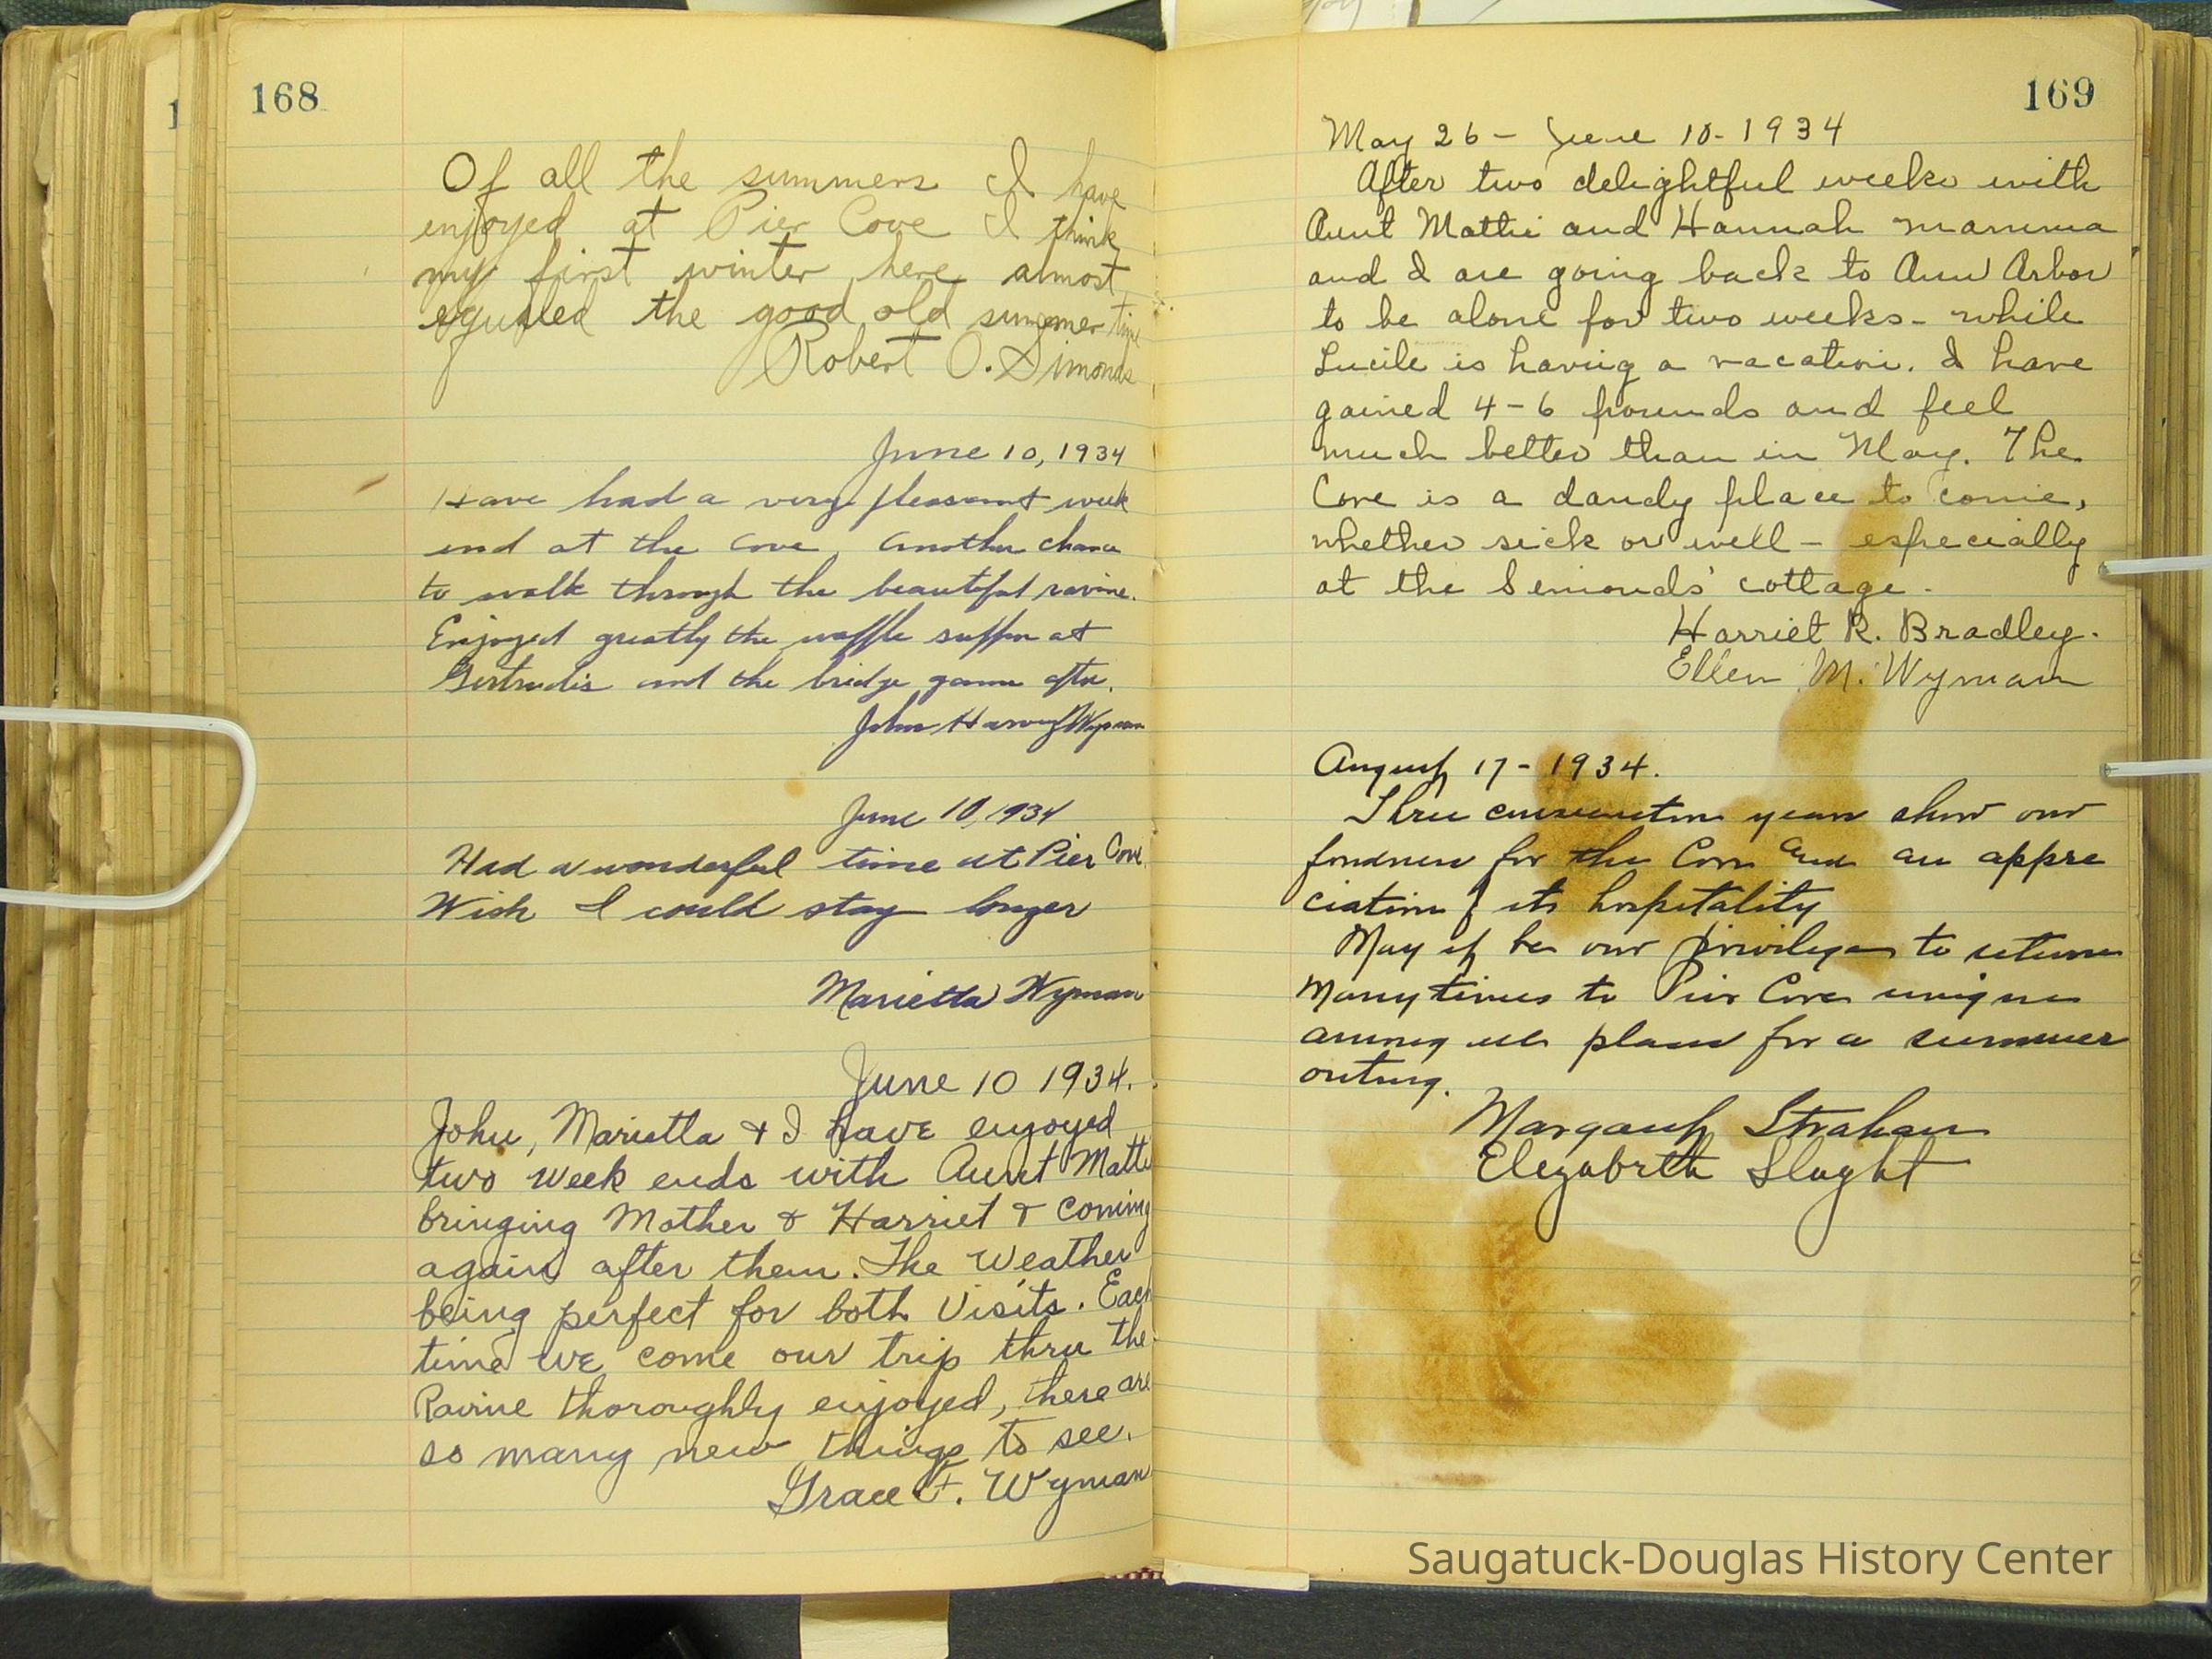 168
Of all the summers I have
enjoyed at Pier Cove I think
my first winter here almost
equalled the good old summer time
Robert O. Simonds
June 10, 1934
Have had a very pleasant week
end at the Cove, another chance
to walk through the beautiful ravine.
Enjoyed greatly the waffle supper at
Gertrude's and the bridge game after.
John Harvey Wyman
June 10, 1934
Had a wonderful time at Pier Cove.
Wish I could stay longer
Marietta Wyman
June 10 1934.
John, Marietta & I have enjoyed
two week ends with Aunt Mattie
bringing Mother & Harriet & coming
again after them. The Weather
being perfect for both Visits. Each
time we come our trip thru the
Ravine thoroughly enjoyed, there are
so many new things to see.
Grace F. Wyman
169
May 26 - June 10 - 1934
After two delightful weeks with
Aunt Mattie and Hannah mamma
and I are going back to Ann Arbor
to be alone for two weeks - while
Lucile is having a vacation. I have
gained 4-6 pounds and feel
much better than in May. The
Cove is a dandy place to come,
whether sick or well - especially
at the Simonds' cottage.
Harriet R. Bradley.
Ellen M. Wyman
August 17 - 1934.
Three consecutive years show our
fondness for the Cove and an appre
ciation of its hospitality
May it be our privilege to return
Many times to Pier Cove unique
among all places for a summer
outing.
Margaret Strahan
Elizabeth Slaght
Saugatuck-Douglas History Center